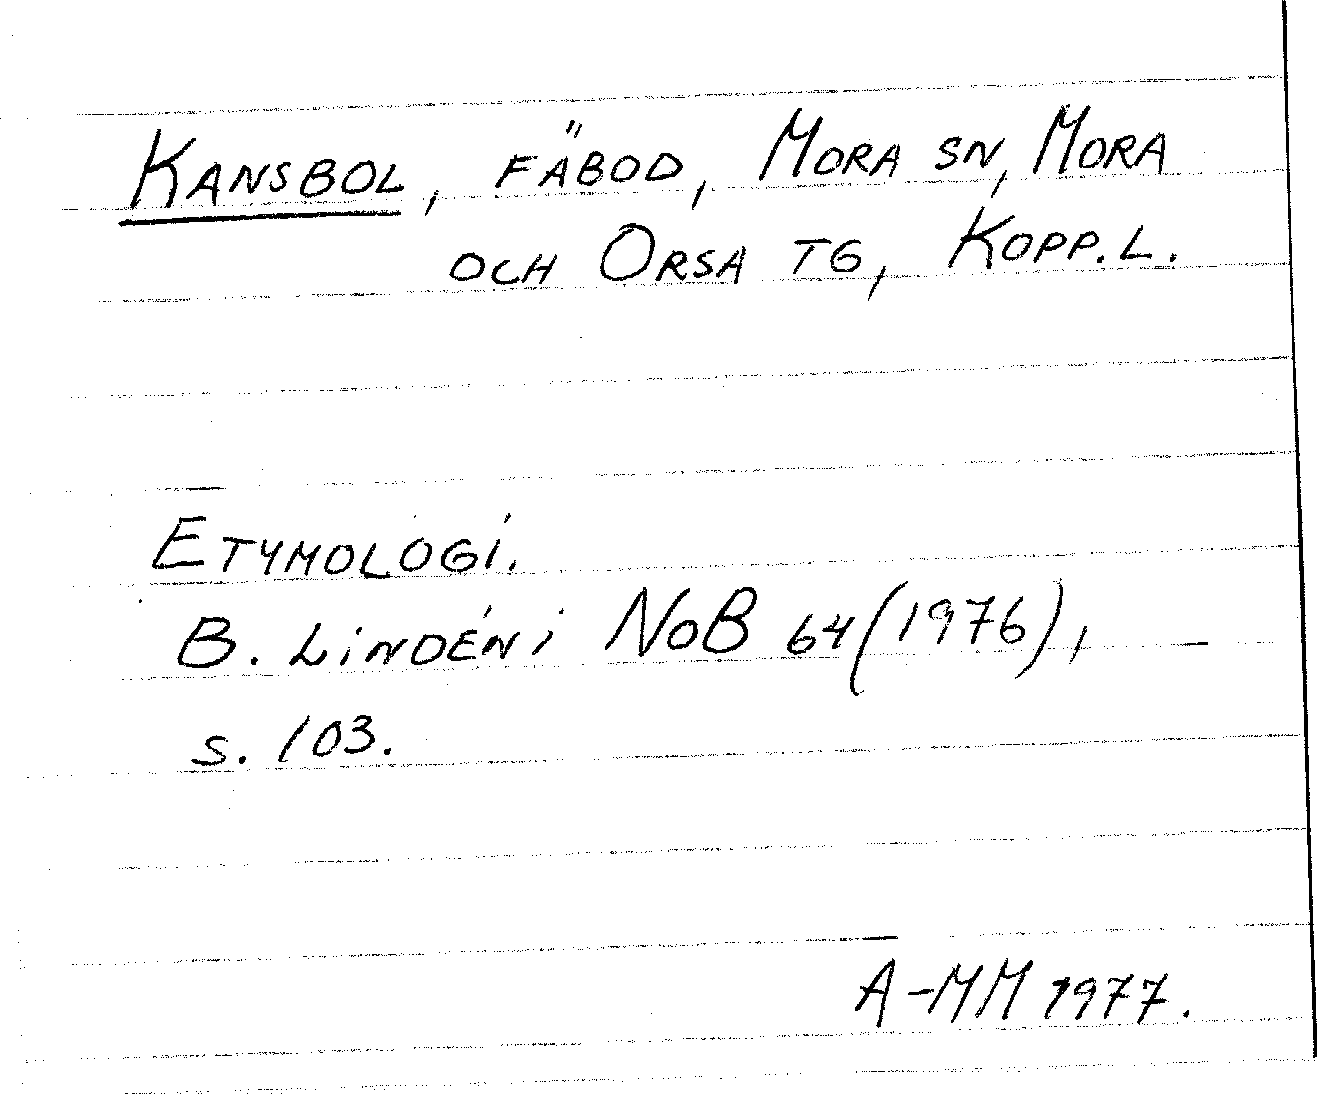 KANSBOL, FÄBOD, MORA SN, MORA
OCH ORSA TG, KOPP.L.
ETYMOLOGI.
B. LINDÉN i NoB 64 (1976),
s. 103.
A-MM 1977.